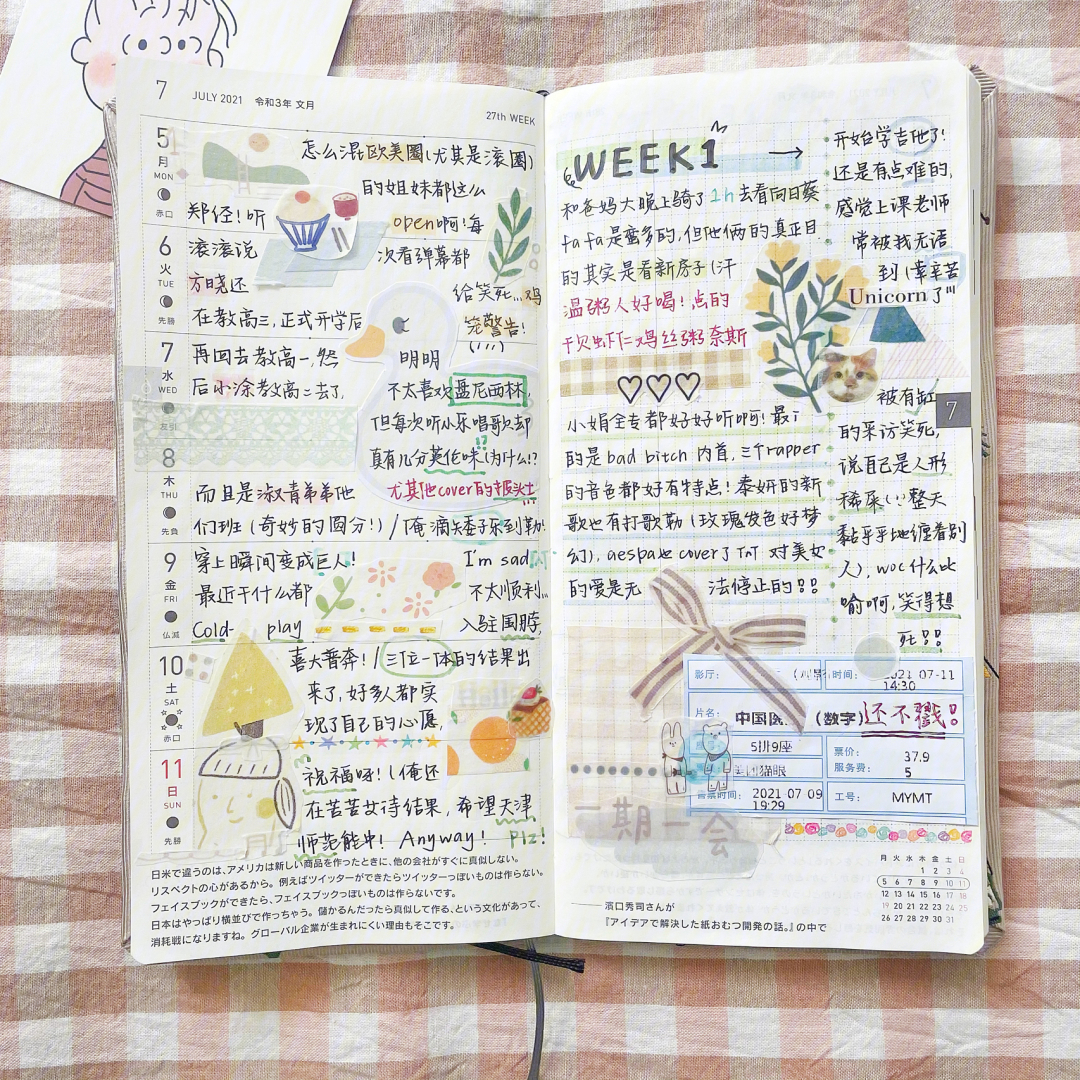 7 JULY 2021 令和3年 文月
27th WEEK
5
月
MON
赤口
6
火
TUE
先勝
7
水
WED
友引
8
木
THU
先負
9
金
FRI
仏滅
10
土
SAT
赤口
11
日
SUN
先勝
怎么混欧美圈(尤其是滚圈)
的姐妹都这么
open啊!每
次看弹幕都
给笑死...鸡
笼警告!
郑经!听
滚滚说
方晓还
在教高三,正式开学后
再回去教高一,然
后小涂教高二去了,
明明
不太喜欢盘尼西林,
但每次听小乐唱歌却
真有几分莫伦味(为什么!?
尤其他cover的
而且是淑青弟弟他
们班(奇妙的圆分!)/俺滴
穿上瞬间变成巨人!
I'm sad
最近干什么都
不太顺利...
Cold-play
入驻国腾,
喜大普奔!/三位一体的结果出
来了,好多人都实
现了自己的心愿,
祝福呀!(俺还
在苦苦女待结果,希望天津
师范能中! Anyway! Plz!
日米で違うのは、アメリカは新しい商品を作ったときに、他の会社がすぐに真似しない。
リスペクトの心があるから。例えばツイッターができたらツイッターっぽいものは作らない。
フェイスブックができたら、フェイスブックっぽいものは作らないです。
日本はやっぱり横並びで作っちゃう。儲かるんだったら真似して作る、という文化があって、
消耗戦になりますね。グローバル企業が生まれにくい理由もそこです。
WEEK1 →
和爸妈大晚上骑了1h去看向日葵
fafa是蛮多的,但他俩的真正目
的其实是看新房子(汗
温粥人好喝!点的
干贝虾仁鸡丝粥奈斯
小娟全专都好好听啊!最i
的是bad bitch内首,三个rapper
的音色都好有特点!泰妍的新
歌也有打歌勒(玫瑰发色好梦
幻),aespa也cover了TnT 对美女
的爱是无 法停止的!!
开始学吉他了!
还是有点难的,
感觉上课老师
常被我无语
到(幸辛苦
Unicorn了
被有缸
的采访笑死,
说自己是人形
稀屎 整天
黏乎乎地缠着别
人),woc什么比
喻啊,笑得想
死!!
7
影厅:
时间: 2021 07-11
14:30
片名: 中国医 (数字)还不戳!
5排9座
票价: 37.9
服务费: 5
猫眼
售票时间: 2021 07 09
19:29
工号: MYMT
一期一会
濱口秀司さんが
『アイデアで解決した紙おむつ開発の話。』の中で
月 火 水 木 金 土 日
1 2 3 4
5 6 7 8 9 10 11
12 13 14 15 16 17 18
19 20 21 22 23 24 25
26 27 28 29 30 31